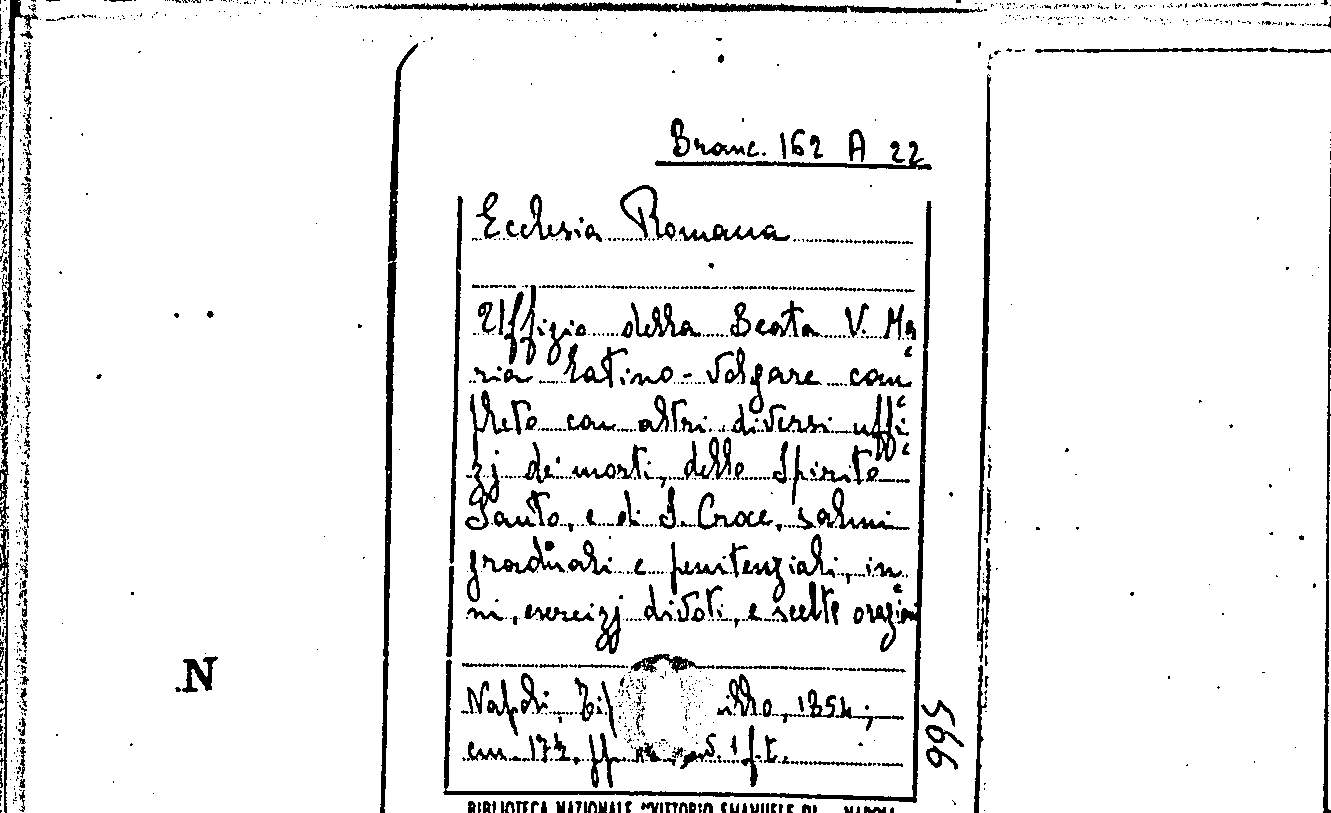 Branc. 162 A 22
Ecclesia Romana
Uffizio della Beata V. Ma
ria Latino-Volgare com
pleto con altri diversi uffi
zj de' morti, dello Spirito
Santo, e di S. Croce, salmi
graduali e penitenziali, in
ni, esercizj divoti, e scelte orazioni
N
Napoli, Tip 1854;
cm. 17½, pp. 1 f.t.
566
BIBLIOTECA NAZIONALE "VITTORIO EMANUELE NAPOLI